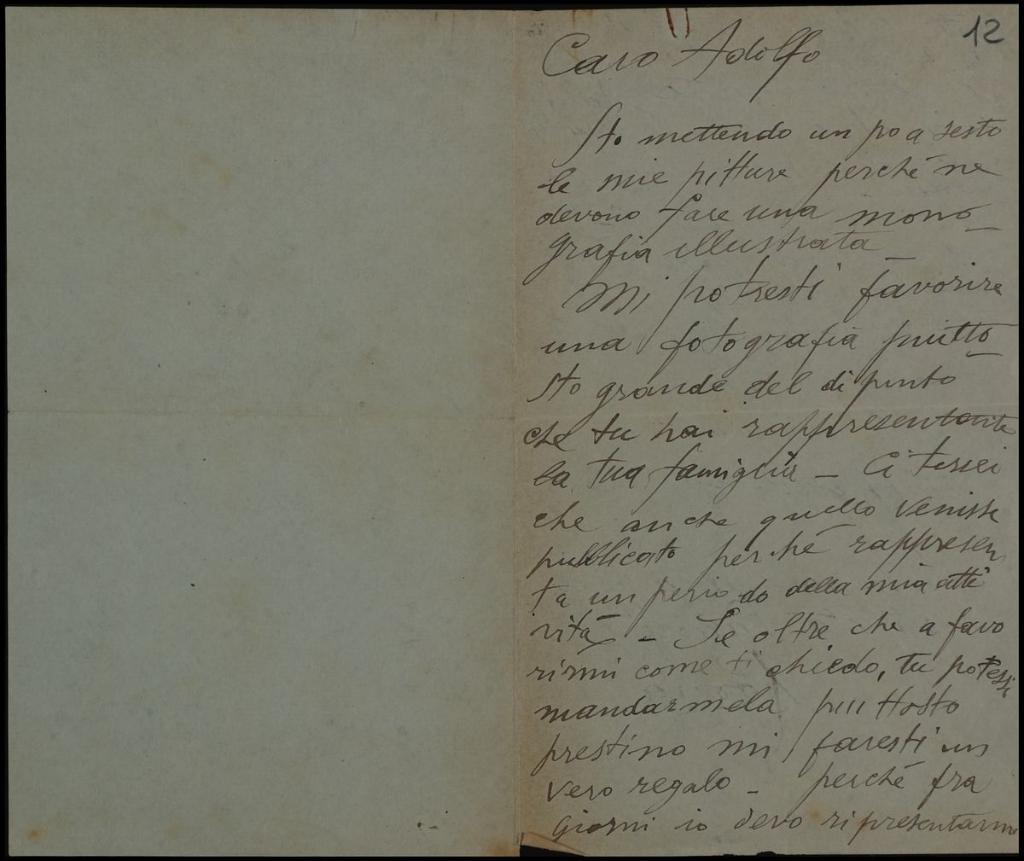 12
Caro Adolfo
Sto mettendo un po a sesto
le mie pitture perché ne
devono fare una mono
grafia illustrata
Mi potresti favorire
una fotografia piutto
sto grande del dipinto
che tu hai rappresentante
la tua famiglia – Ci terrei
che anche quello venisse
pubblicato perché rappresen
ta un periodo della mia atti
vità – Se oltre che a favo
rirmi come ti chiedo, tu potessi
mandarmela piuttosto
prestino mi faresti un
vero regalo – perché fra
giorni io devo ripresentarmi